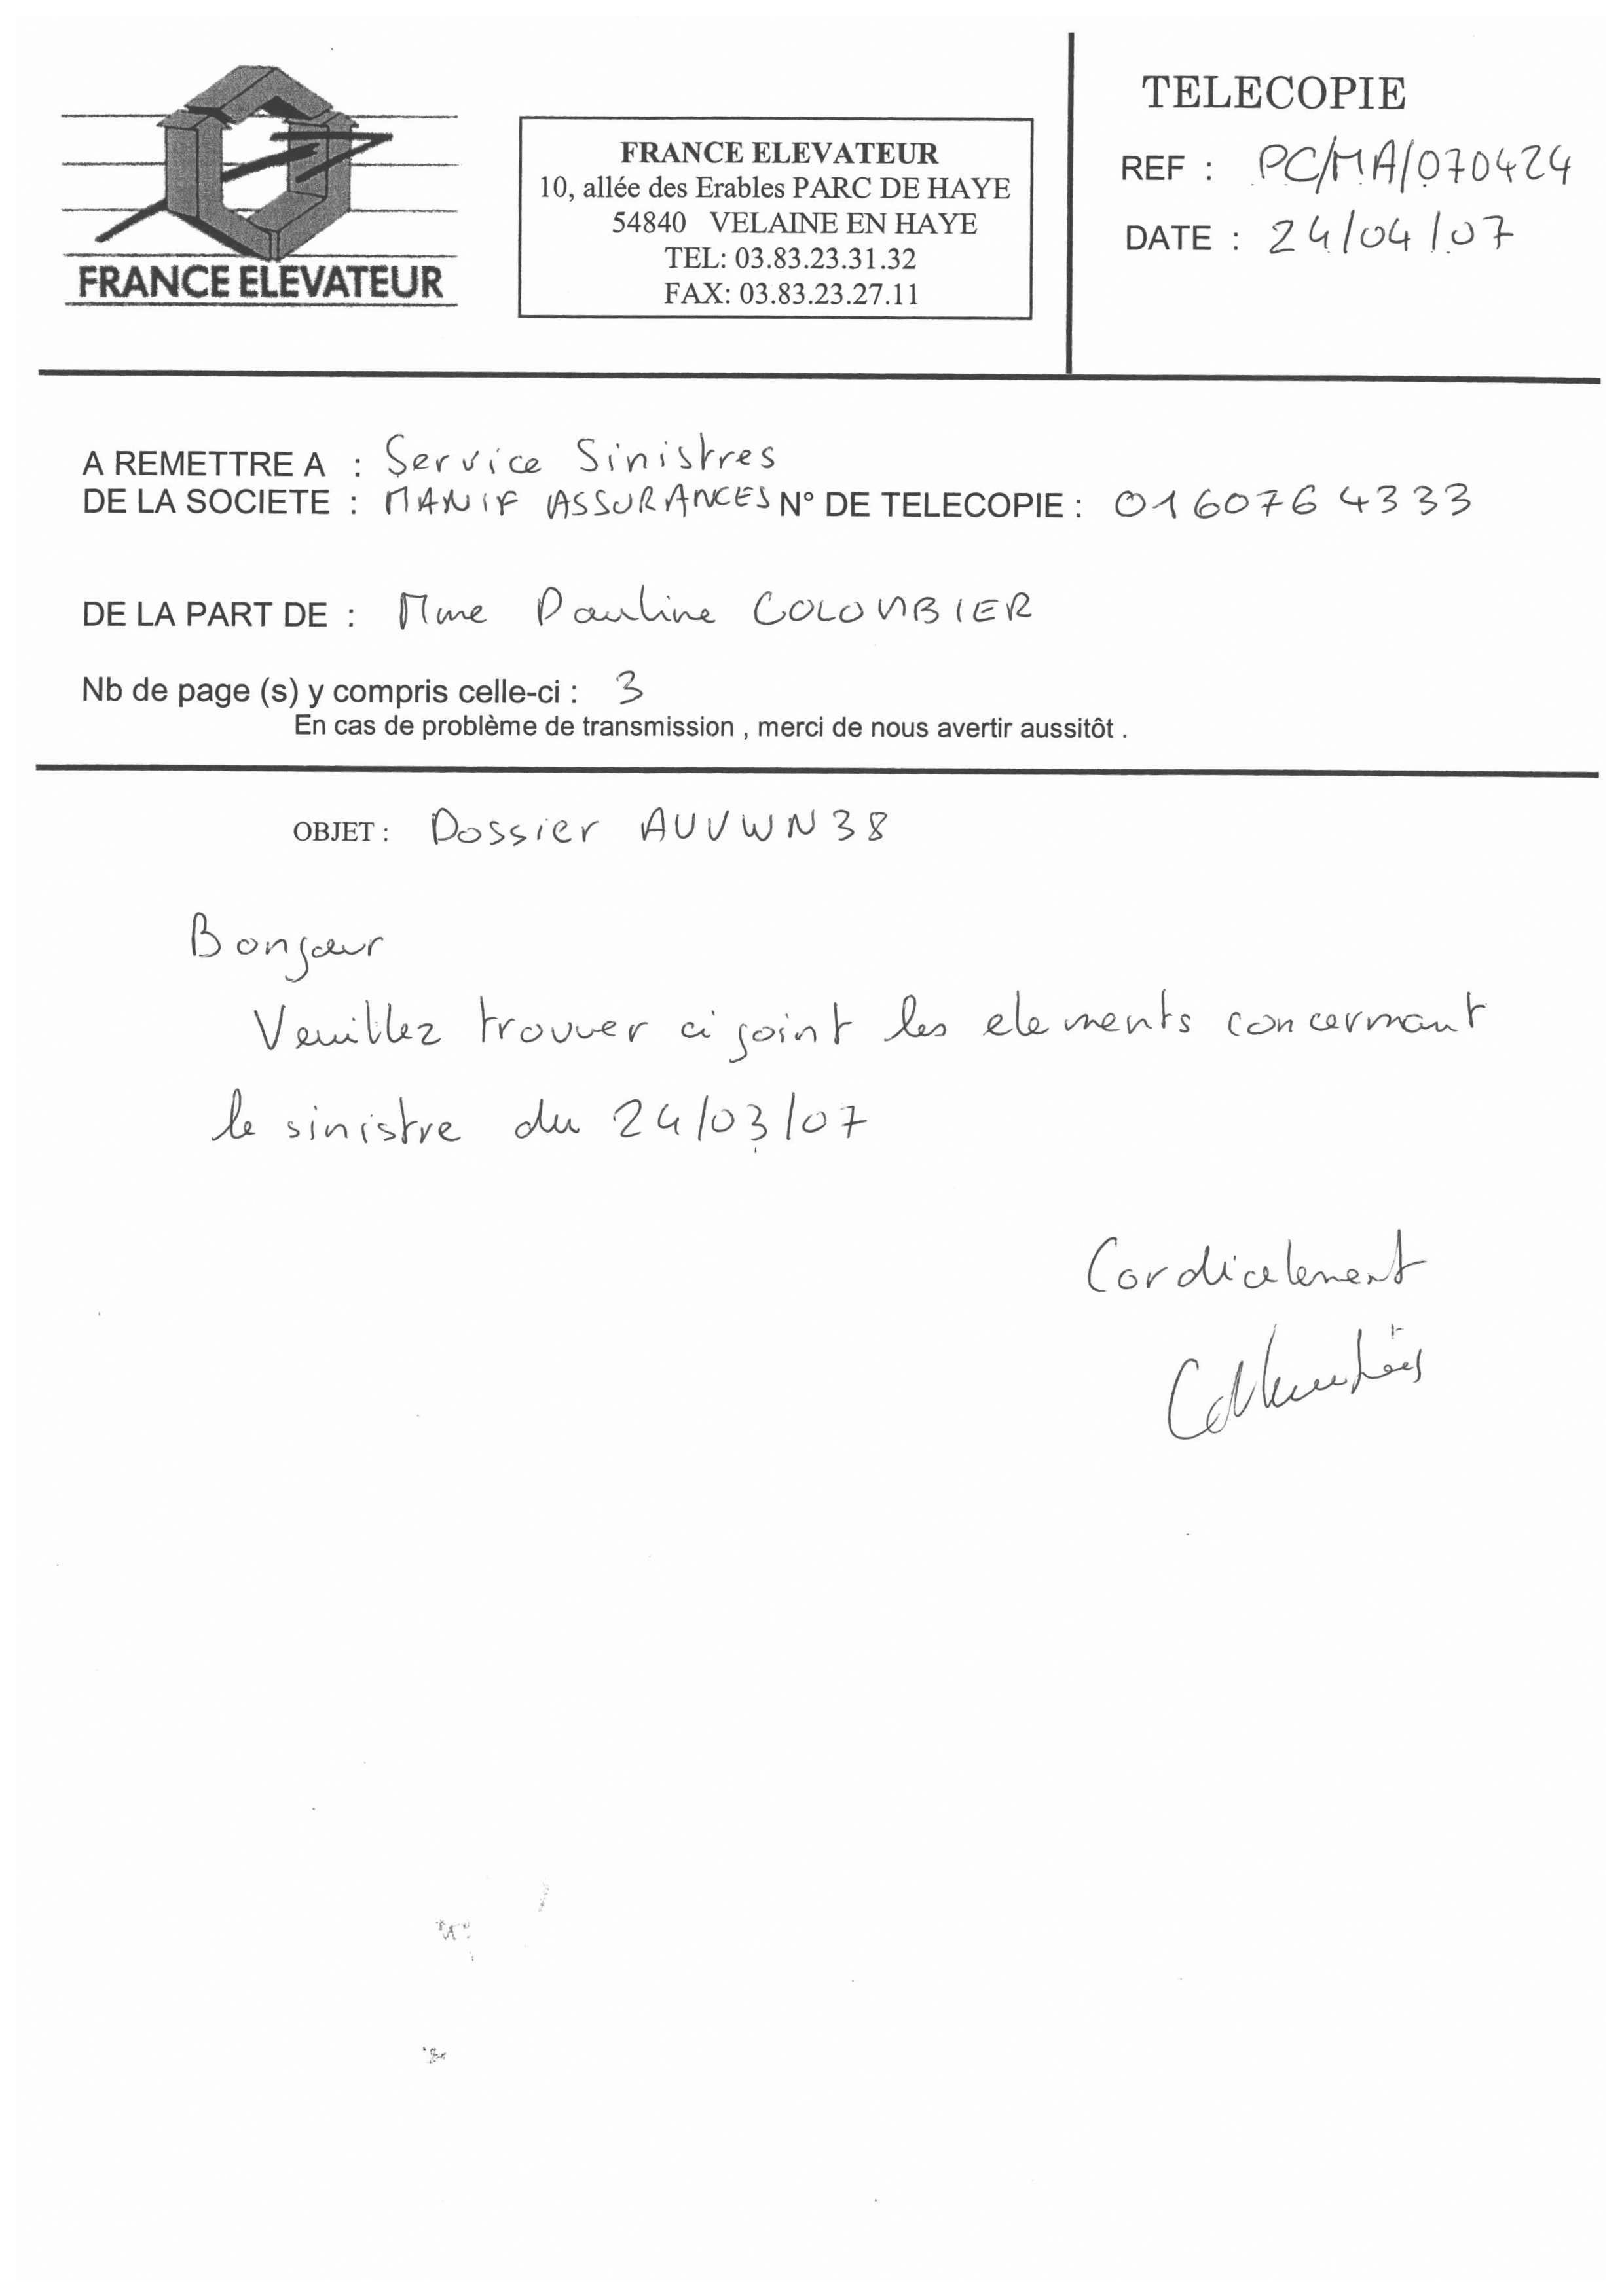 TELECOPIE
FRANCE ELEVATEUR
10, allée des Erables PARC DE HAYE
54840 VELAINE EN HAYE
TEL: 03.83.23.31.32
FAX: 03.83.23.27.11
REF : PC/MA/070424
DATE : 24/04/07
FRANCE ELEVATEUR
A REMETTRE A : Service Sinistres
DE LA SOCIETE : MANIF ASSURANCES N° DE TELECOPIE : 0160764333
DE LA PART DE : Mme Pauline COLOMBIER
Nb de page (s) y compris celle-ci : 3
En cas de problème de transmission , merci de nous avertir aussitôt .
OBJET : Dossier AUVWN38
Bonjour
Veuillez trouver ci joint les elements concernant
le sinistre du 24/03/07
Cordialement